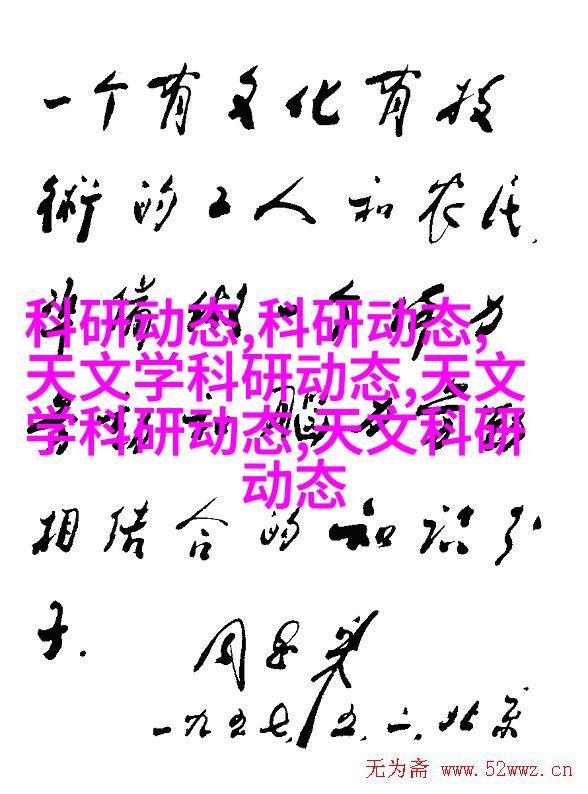 一个有文化有技
術的工人和农民,
科研动态,科研动态,
天文学科研动态,天文
学科研动态,天文科研
动态
相结合的知识分
子.
周恩来
一九五七,五,二,北京
无为斋 www.52wwz.cn